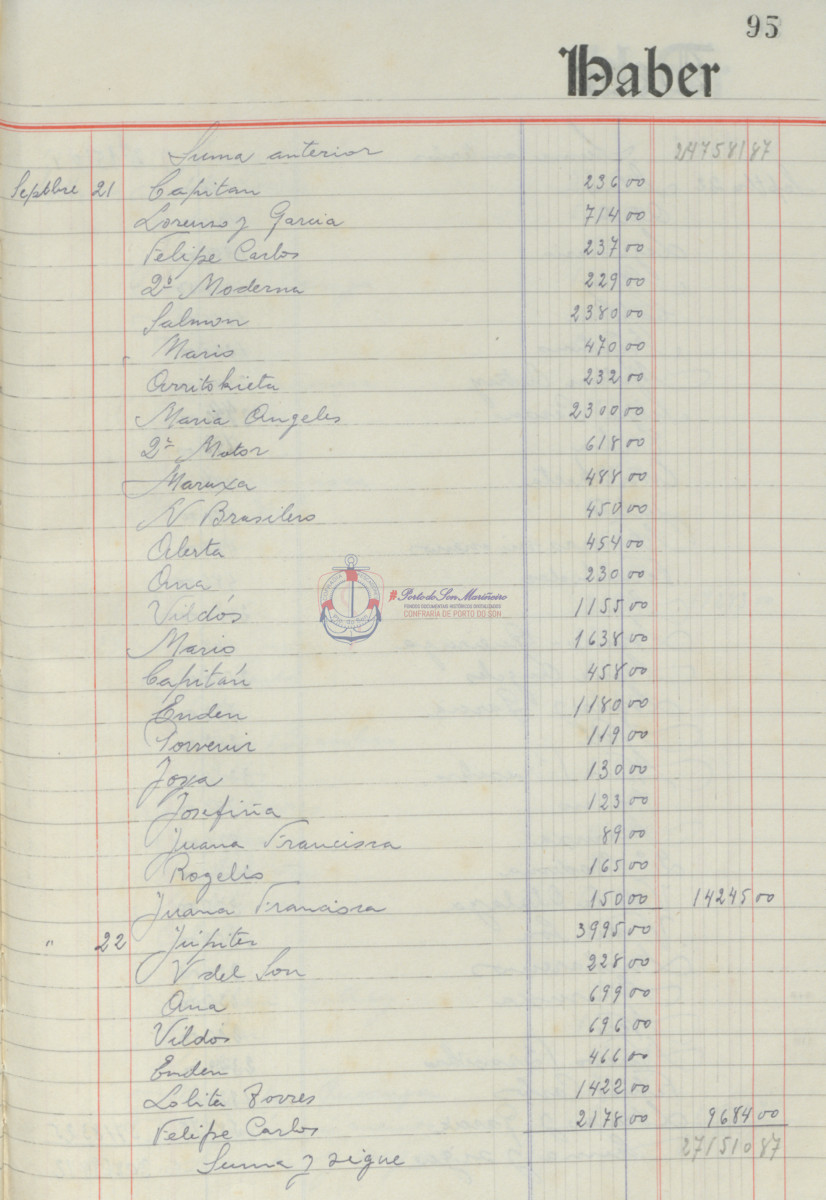 95
Haber
Suma anterior 247581 87
Septbre 21 Capitan 236 00
Lorenzo y Garcia 714 00
Felipe Carlos 237 00
2º Moderna 229 00
Salmon 2380 00
Mario 470 00
Arritokieta 232 00
Maria Angeles 2300 00
2º Motor 618 00
Maruxa 488 00
N Brasilero 450 00
Alerta 454 00
Ana 230 00
Vildós 1155 00
#Porto do Son Mariñeiro
FONDOS DOCUMENTAIS HISTÓRICOS DIXITALIZADOS
CONFRARÍA DE PORTO DO SON
Mario 1638 00
Capitán 458 00
Enden 1180 00
Porvenir 119 00
Joya 130 00
Josefiña 123 00
Juana Francisca 89 00
Rogelio 165 00
Juana Francisca 150 00 14245 00
" 22 Júpiter 3995 00
V del Son 228 00
Ana 699 00
Vildós 696 00
Enden 466 00
Lolita Torres 1422 00
Felipe Carlos 2178 00 9684 00
Suma y sigue 271510 87